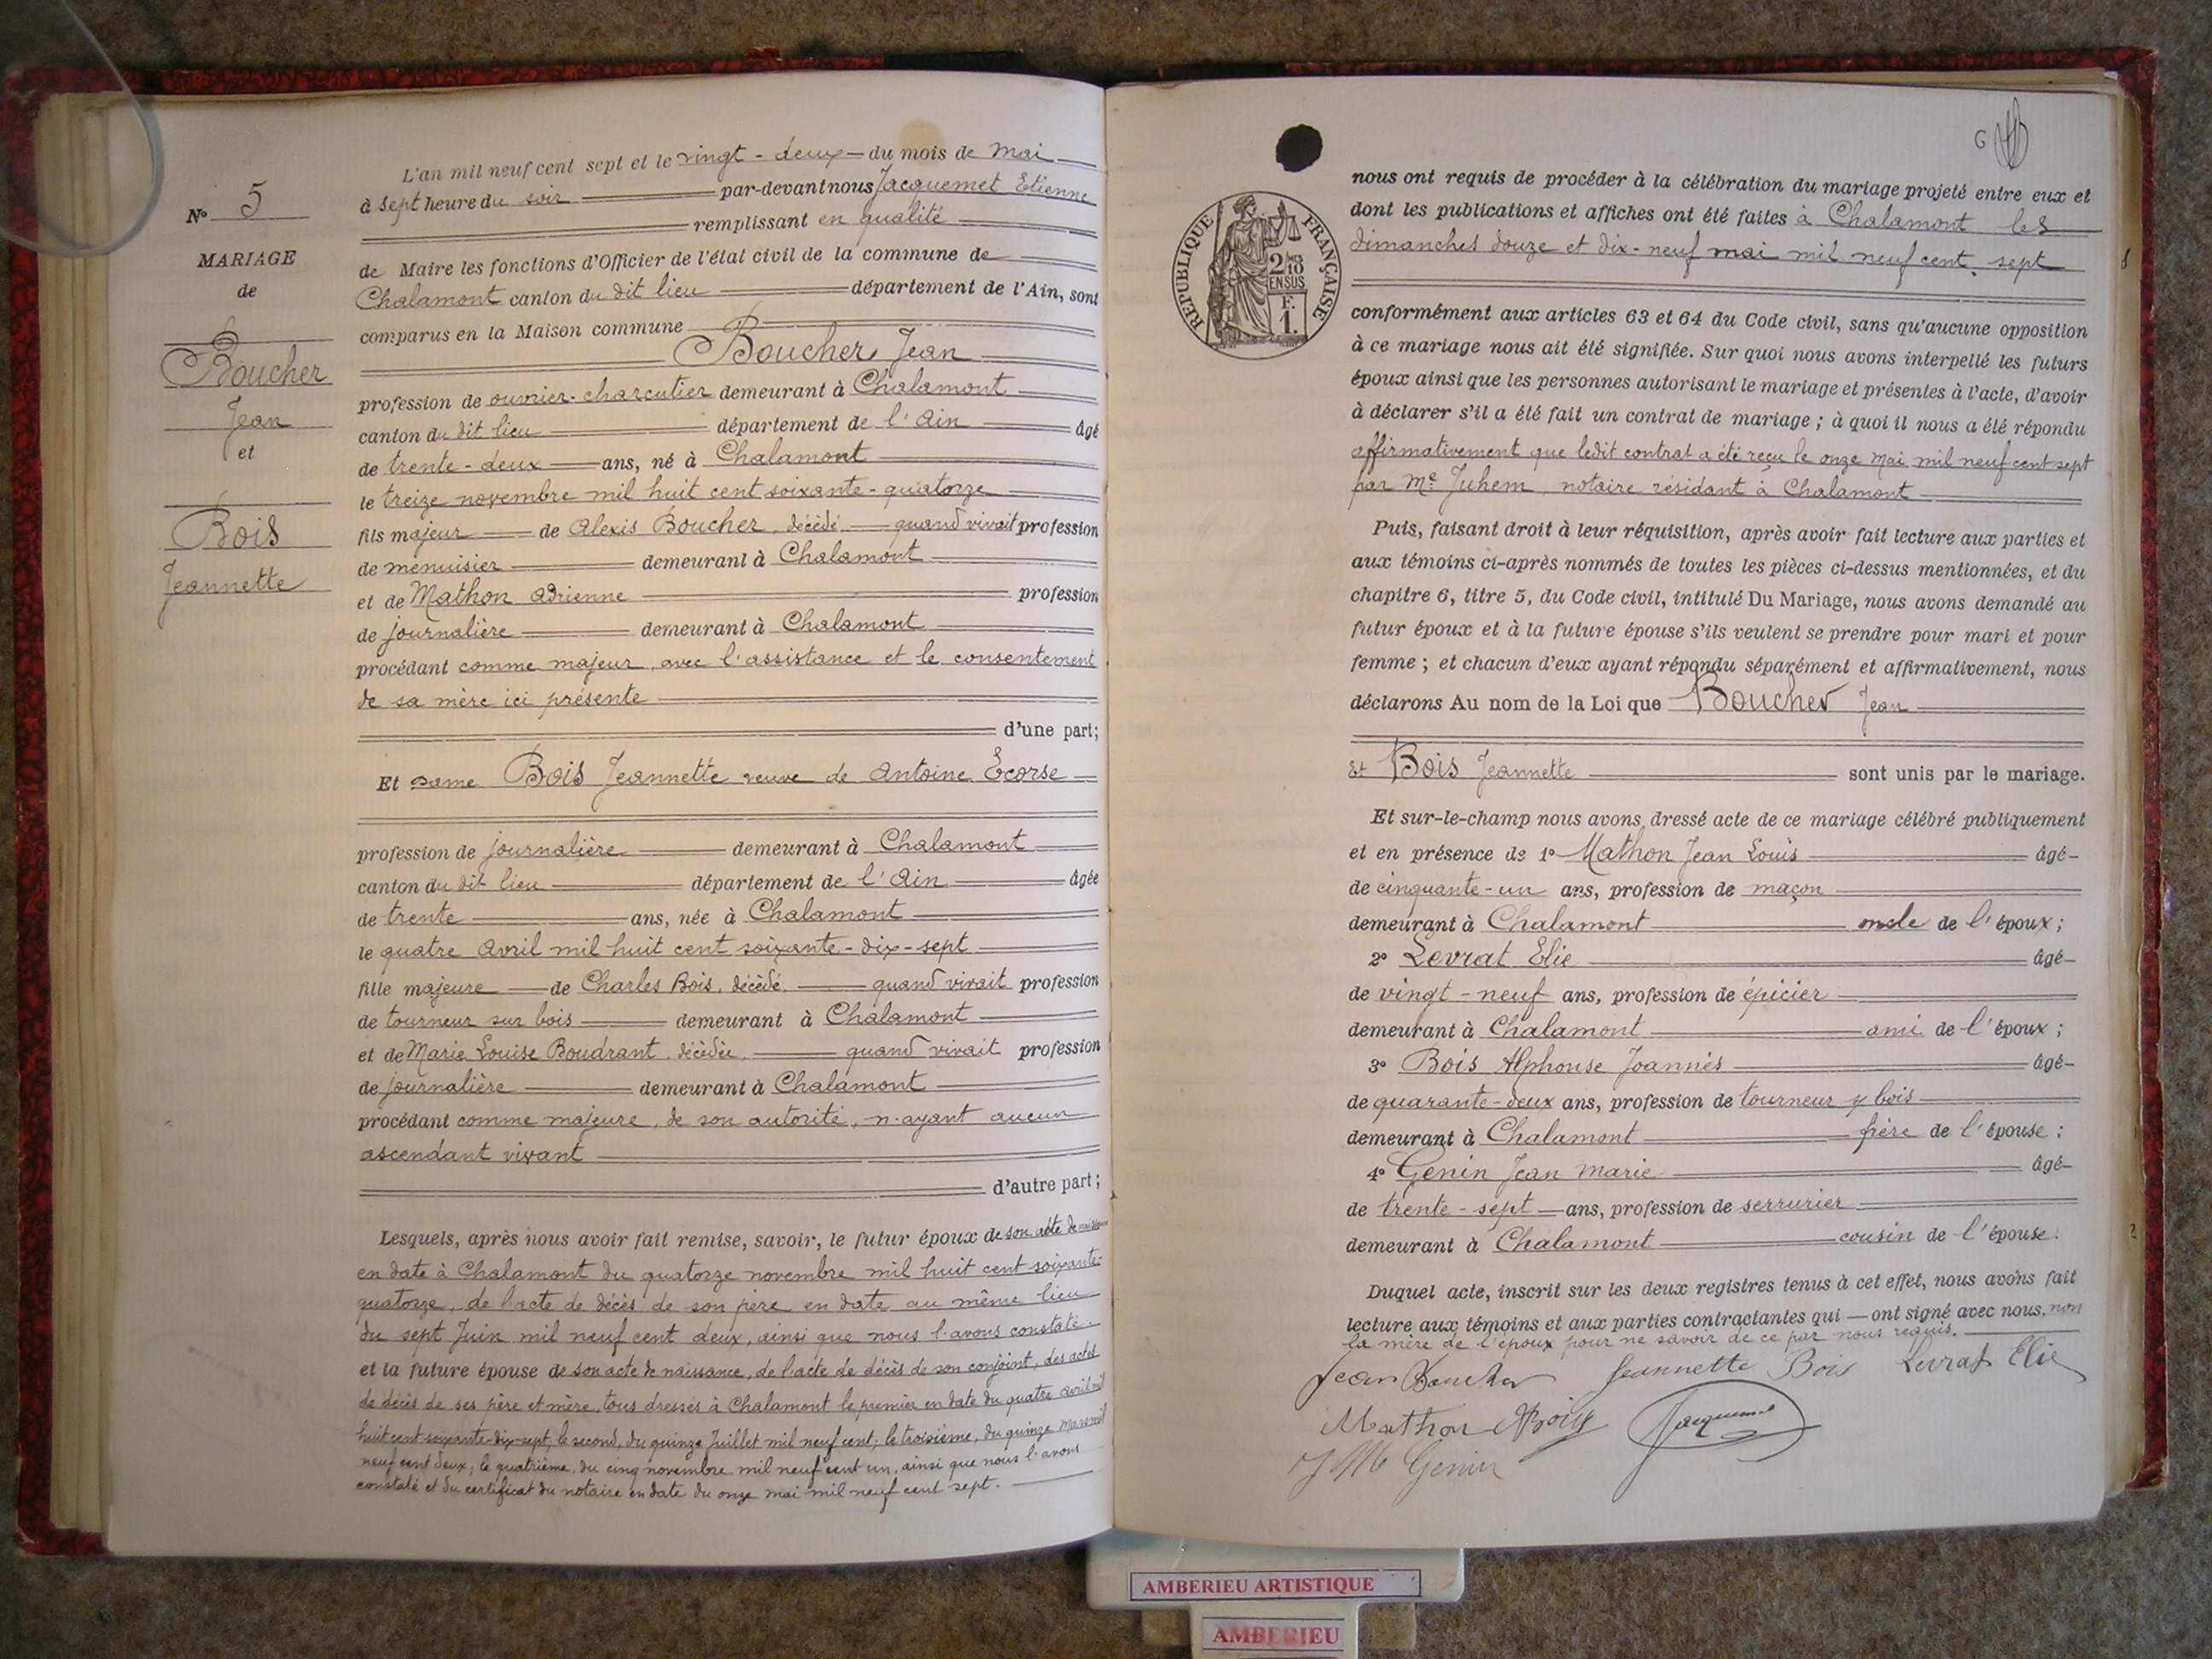 L'an mil neuf cent sept et le vingt-deux du mois de mai
à sept heure du soir par-devant nous Jacquemet Etienne
remplissant en qualité
de Maire les fonctions d'Officier de l'état civil de la commune de
Chalamont canton du dit lieu département de l'Ain, sont
comparus en la Maison commune
Boucher Jean
profession de ouvrier-charcutier demeurant à Chalamont
canton du dit lieu département de l'Ain âgé
de trente-deux ans, né à Chalamont
le treize novembre mil huit cent soixante-quatorze
fils majeur de Alexis Boucher, décédé quand vivait profession
de menuisier demeurant à Chalamont
et de Mathon Adrienne profession
de journalière demeurant à Chalamont
procédant comme majeur, avec l'assistance et le consentement
de sa mère ici présente
d'une part;
Et Dame Bois Jeannette veuve de Antoine Ecorse
profession de journalière demeurant à Chalamont
canton du dit lieu département de l'Ain âgée
de trente ans, née à Chalamont
le quatre Avril mil huit cent soixante-dix-sept
fille majeure de Charles Bois, décédé, quand vivait profession
de tourneur sur bois demeurant à Chalamont
et de Marie Louise Boudrant, décédée, quand vivait profession
de journalière demeurant à Chalamont
procédant comme majeure, de son autorité, n'ayant aucun
ascendant vivant
d'autre part;
Lesquels, après nous avoir fait remise, savoir, le futur époux de son acte de naissance
en date à Chalamont du quatorze novembre mil huit cent soixante-
quatorze, de l'acte de décès de son père en date au même lieu
du sept Juin mil neuf cent deux, ainsi que nous l'avons constaté.
et la future épouse de son acte de naissance, de l'acte de décès de son conjoint, des actes
de décès de ses père et mère, tous dressés à Chalamont le premier en date du quatre avril mil
huit cent soixante-dix-sept, le second, du quinze Juillet mil neuf cent; le troisième, du quinze mars mil
neuf cent deux; le quatrième, du cinq novembre mil neuf cent un, ainsi que nous l'avons
constaté et du certificat du notaire en date du onze mai mil neuf cent sept.
N° 5
MARIAGE
de
Boucher
Jean
et
Bois
Jeannette
6
REPUBLIQUE FRANÇAISE
2/10
EN SUS
F.
1.
nous ont requis de procéder à la célébration du mariage projeté entre eux et
dont les publications et affiches ont été faites à Chalamont les
dimanches douze et dix-neuf mai mil neuf cent sept
conformément aux articles 63 et 64 du Code civil, sans qu'aucune opposition
à ce mariage nous ait été signifiée. Sur quoi nous avons interpellé les futurs
époux ainsi que les personnes autorisant le mariage et présentes à l'acte, d'avoir
à déclarer s'il a été fait un contrat de mariage; à quoi il nous a été répondu
affirmativement que ledit contrat a été reçu le onze mai mil neuf cent sept
par Me Juhem, notaire résidant à Chalamont
Puis, faisant droit à leur réquisition, après avoir fait lecture aux parties et
aux témoins ci-après nommés de toutes les pièces ci-dessus mentionnées, et du
chapitre 6, titre 5, du Code civil, intitulé Du Mariage, nous avons demandé au
futur époux et à la future épouse s'ils veulent se prendre pour mari et pour
femme; et chacun d'eux ayant répondu séparément et affirmativement, nous
déclarons Au nom de la Loi que Boucher Jean
Et Bois Jeannette sont unis par le mariage.
Et sur-le-champ nous avons dressé acte de ce mariage célébré publiquement
et en présence de 1° Mathon Jean Louis âgé
de cinquante-un ans, profession de maçon
demeurant à Chalamont oncle de l'époux;
2° Levrat Elie âgé
de vingt-neuf ans, profession de épicier
demeurant à Chalamont ami de l'époux;
3° Bois Alphonse Joannès âgé
de quarante-deux ans, profession de tourneur s/ bois
demeurant à Chalamont frère de l'épouse;
4° Genin Jean Marie âgé
de trente-sept ans, profession de serrurier
demeurant à Chalamont cousin de l'épouse.
Duquel acte, inscrit sur les deux registres tenus à cet effet, nous avons fait
lecture aux témoins et aux parties contractantes qui — ont signé avec nous, non
la mère de l'époux pour ne savoir de ce par nous requis.
Jean Boucher Jeannette Bois Levrat Elie
Mathon ABois Jacquemet
J M Genin
AMBERIEU ARTISTIQUE
AMBERIEU